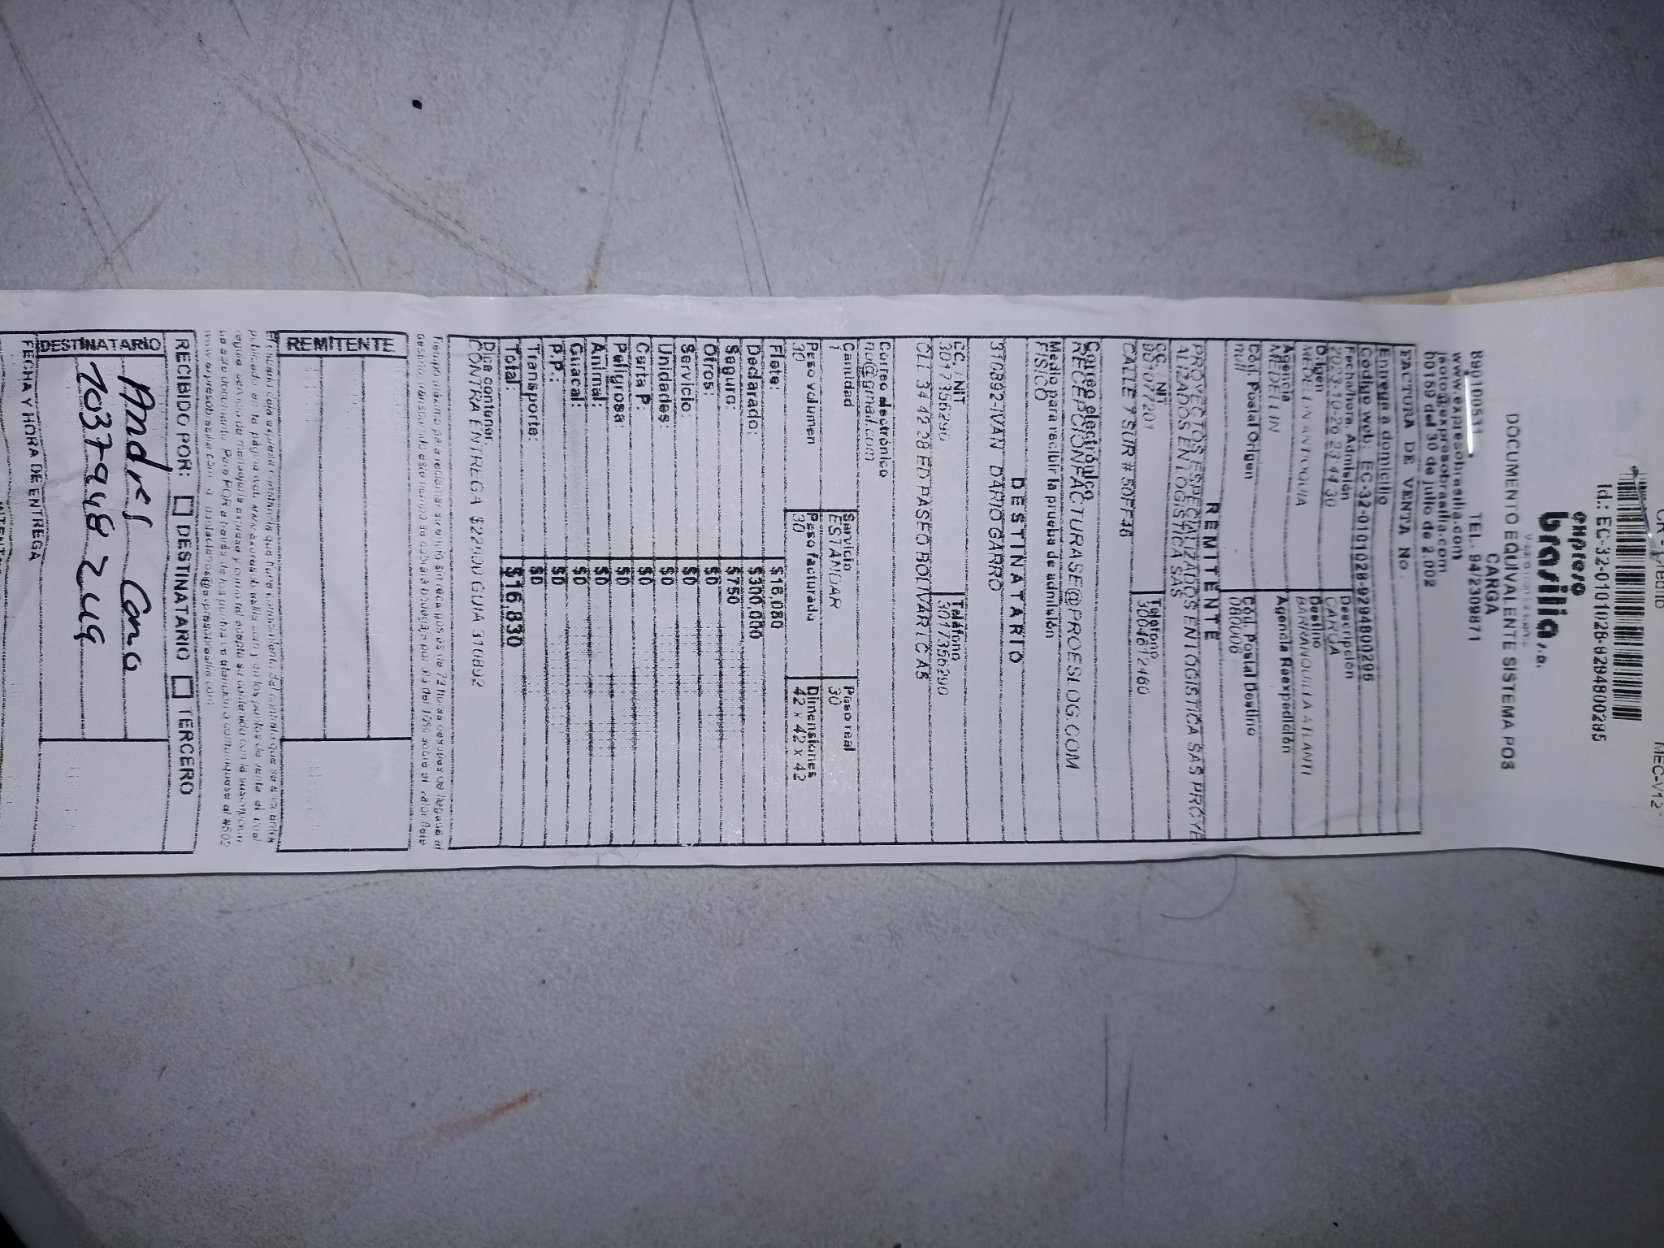 Id.: EC-32-0101028-9294800295
expreso
brasilia s.a.
DOCUMENTO EQUIVALENTE SISTEMA POS
CARGA
890100531 TEL. 94/2309871
www.expresobrasilia.com
00159 del 30 de julio de 2.002
FACTURA DE VENTA No.
Entrega a domicilio
Código web. EC-32-0101028-9294800295
Fecha/hora. Admision Descripcion
2023-10-20 23:44:30 CARGA
Origen Destino
MEDELLIN ANTIOQUIA BARRANQUILLA ATLANTI
Agencia Agencia Reexpedición
MEDELLIN
Cód. Postal Origen Cód. Postal Destino
null 080006
REMITENTE
PROYECTOS ESPECIALIZADOS EN LOGISTICA SAS PROYE
ALIZADOS EN LOGISTICA SAS
CC / NIT Teléfono
CALLE 7 SUR # 50FF38
Correo electrónico
RECEPCIONFACTURASE@PROESLOG.COM
Medio para recibir la prueba de admisión
FISICO
DESTINATARIO
310892-IVAN DARIO GARRO
CC / NIT Teléfono
3017356290 3017356290
CLL 34 42 28 ED PASEO BOLIVAR ICAS
Correo electrónico
no@gmail.com
Cantidad Servicio Peso real
1 ESTANDAR 30
Peso volumen Peso facturado Dimensiones
30 30 42 x 42 x 42
Flete: $16,080
Declarado: $300,000
Seguro: $750
Otros: $0
Servicio: $0
Unidades: $0
Carta P: $0
Peligrosa: $0
Animal: $0
Guacal: $0
P.P.: $0
Transporte: $0
Total: $16,830
Dice contener:
CONTRA ENTREGA $22900 GUIA 310892
REMITENTE
RECIBIDO POR: DESTINATARIO TERCERO
DESTINATARIO
Andres Cano
1037948249
FECHA Y HORA DE ENTREGA